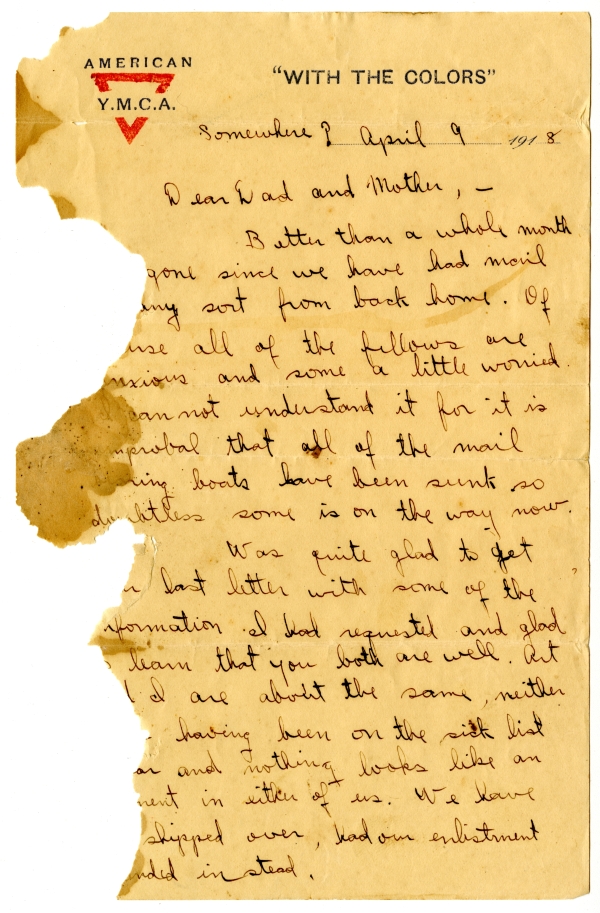 AMERICAN
Y.M.C.A.
"WITH THE COLORS"
Somewhere ? April 9 1918
Dear Dad and Mother, —
Better than a whole month
gone since we have had mail
any sort from back home. Of
use all of the fellows are
nxious and some a little worried.
I can not understand it for it is
mprobal that all of the mail
ring boats have been sunk so
doubtless some is on the way now.
Was quite glad to get
r last letter with some of the
nformation I had requested and glad
learn that you both are well. Art
d I are about the same, neither
having been on the sick list
ar and nothing looks like an
ment in either of us. We have
shipped over, had our enlistment
nded instead.